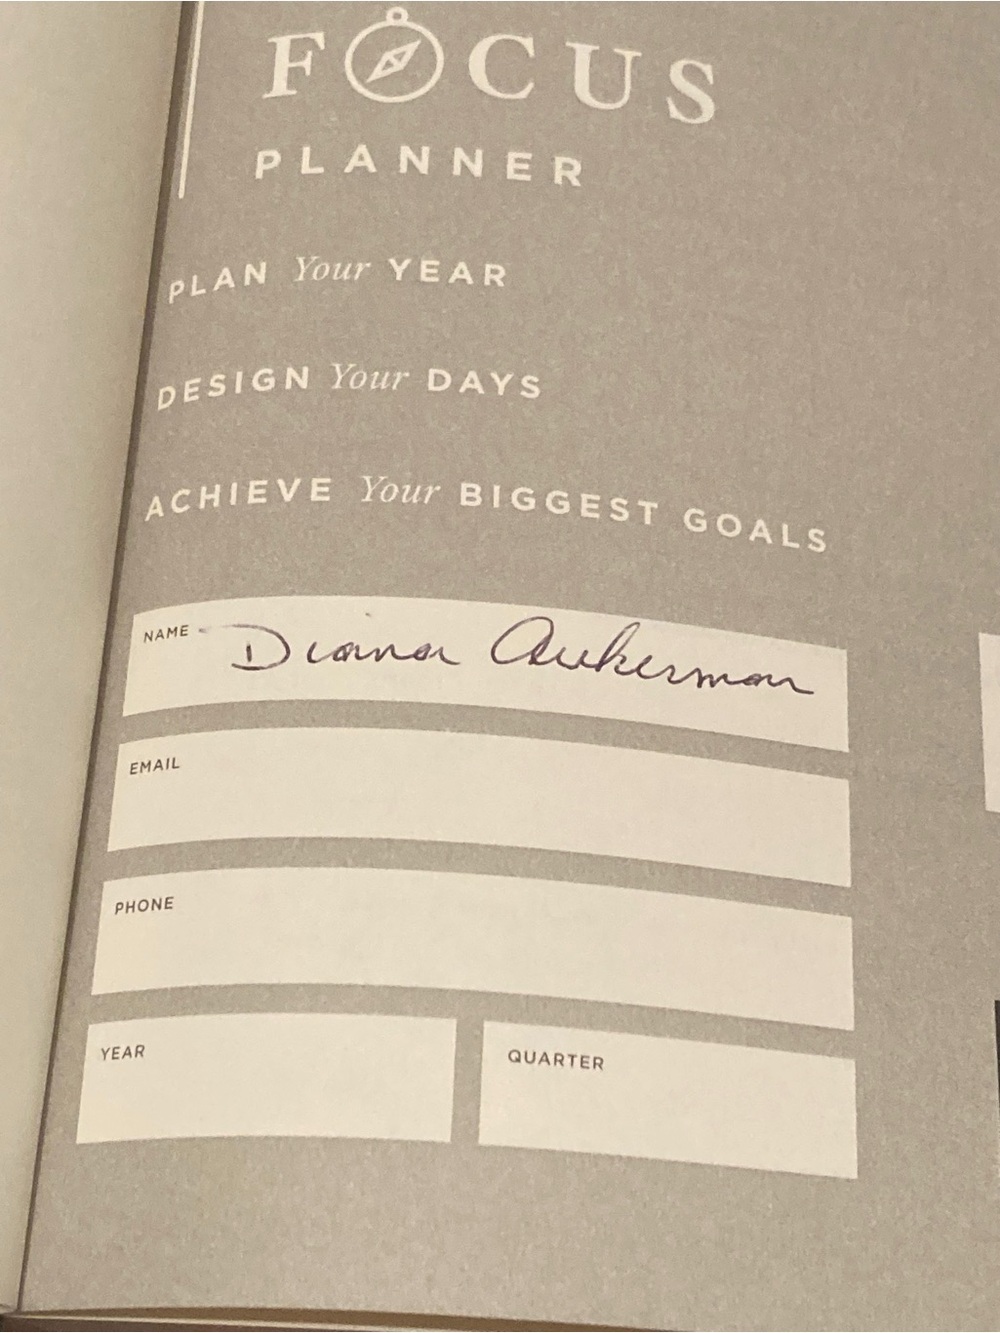 FOCUS
PLANNER
PLAN Your YEAR
DESIGN Your DAYS
ACHIEVE Your BIGGEST GOALS
NAME Diana Aukerman
EMAIL
PHONE
YEAR QUARTER